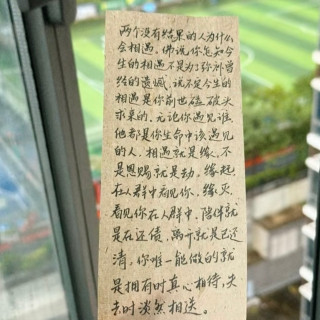 两个没有结果的人为什么
会相遇。佛说你怎知今
生的相遇不是为了弥补曾
经的遗憾，说不定今生的
相遇是你前世磕破头
求来的。无论你遇见谁
他都是你生命中该遇见
的人，相遇就是缘，不
是恩赐就是劫。缘起
在人群中看见你，缘灭
看见你在人群中，陪伴就
是在还债，离开就是已还
清，你唯一能做的就
是拥有时真心相待，失
去时淡然相送。